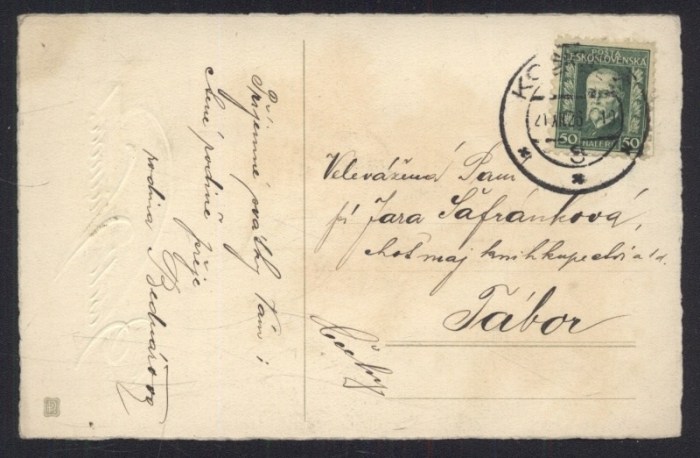 Příjemné svátky Vám i
ctěné rodině přeje
rodina Bednářova
POŠTA
ČESKOSLOVENSKA
50 HALÉŘŮ 50
Velevážená Paní
pí Jara Šafránková,
choť maj. knihkupectví a t.d.
Tábor